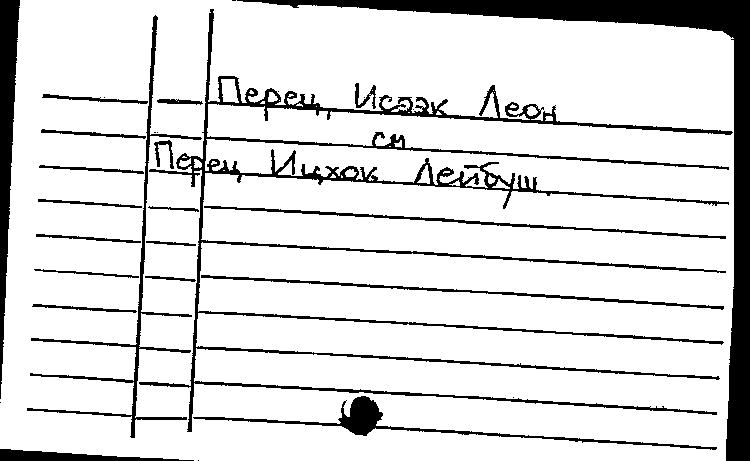 Перец, Исаак Леон
см
Перец Ицхок Лейбуш.